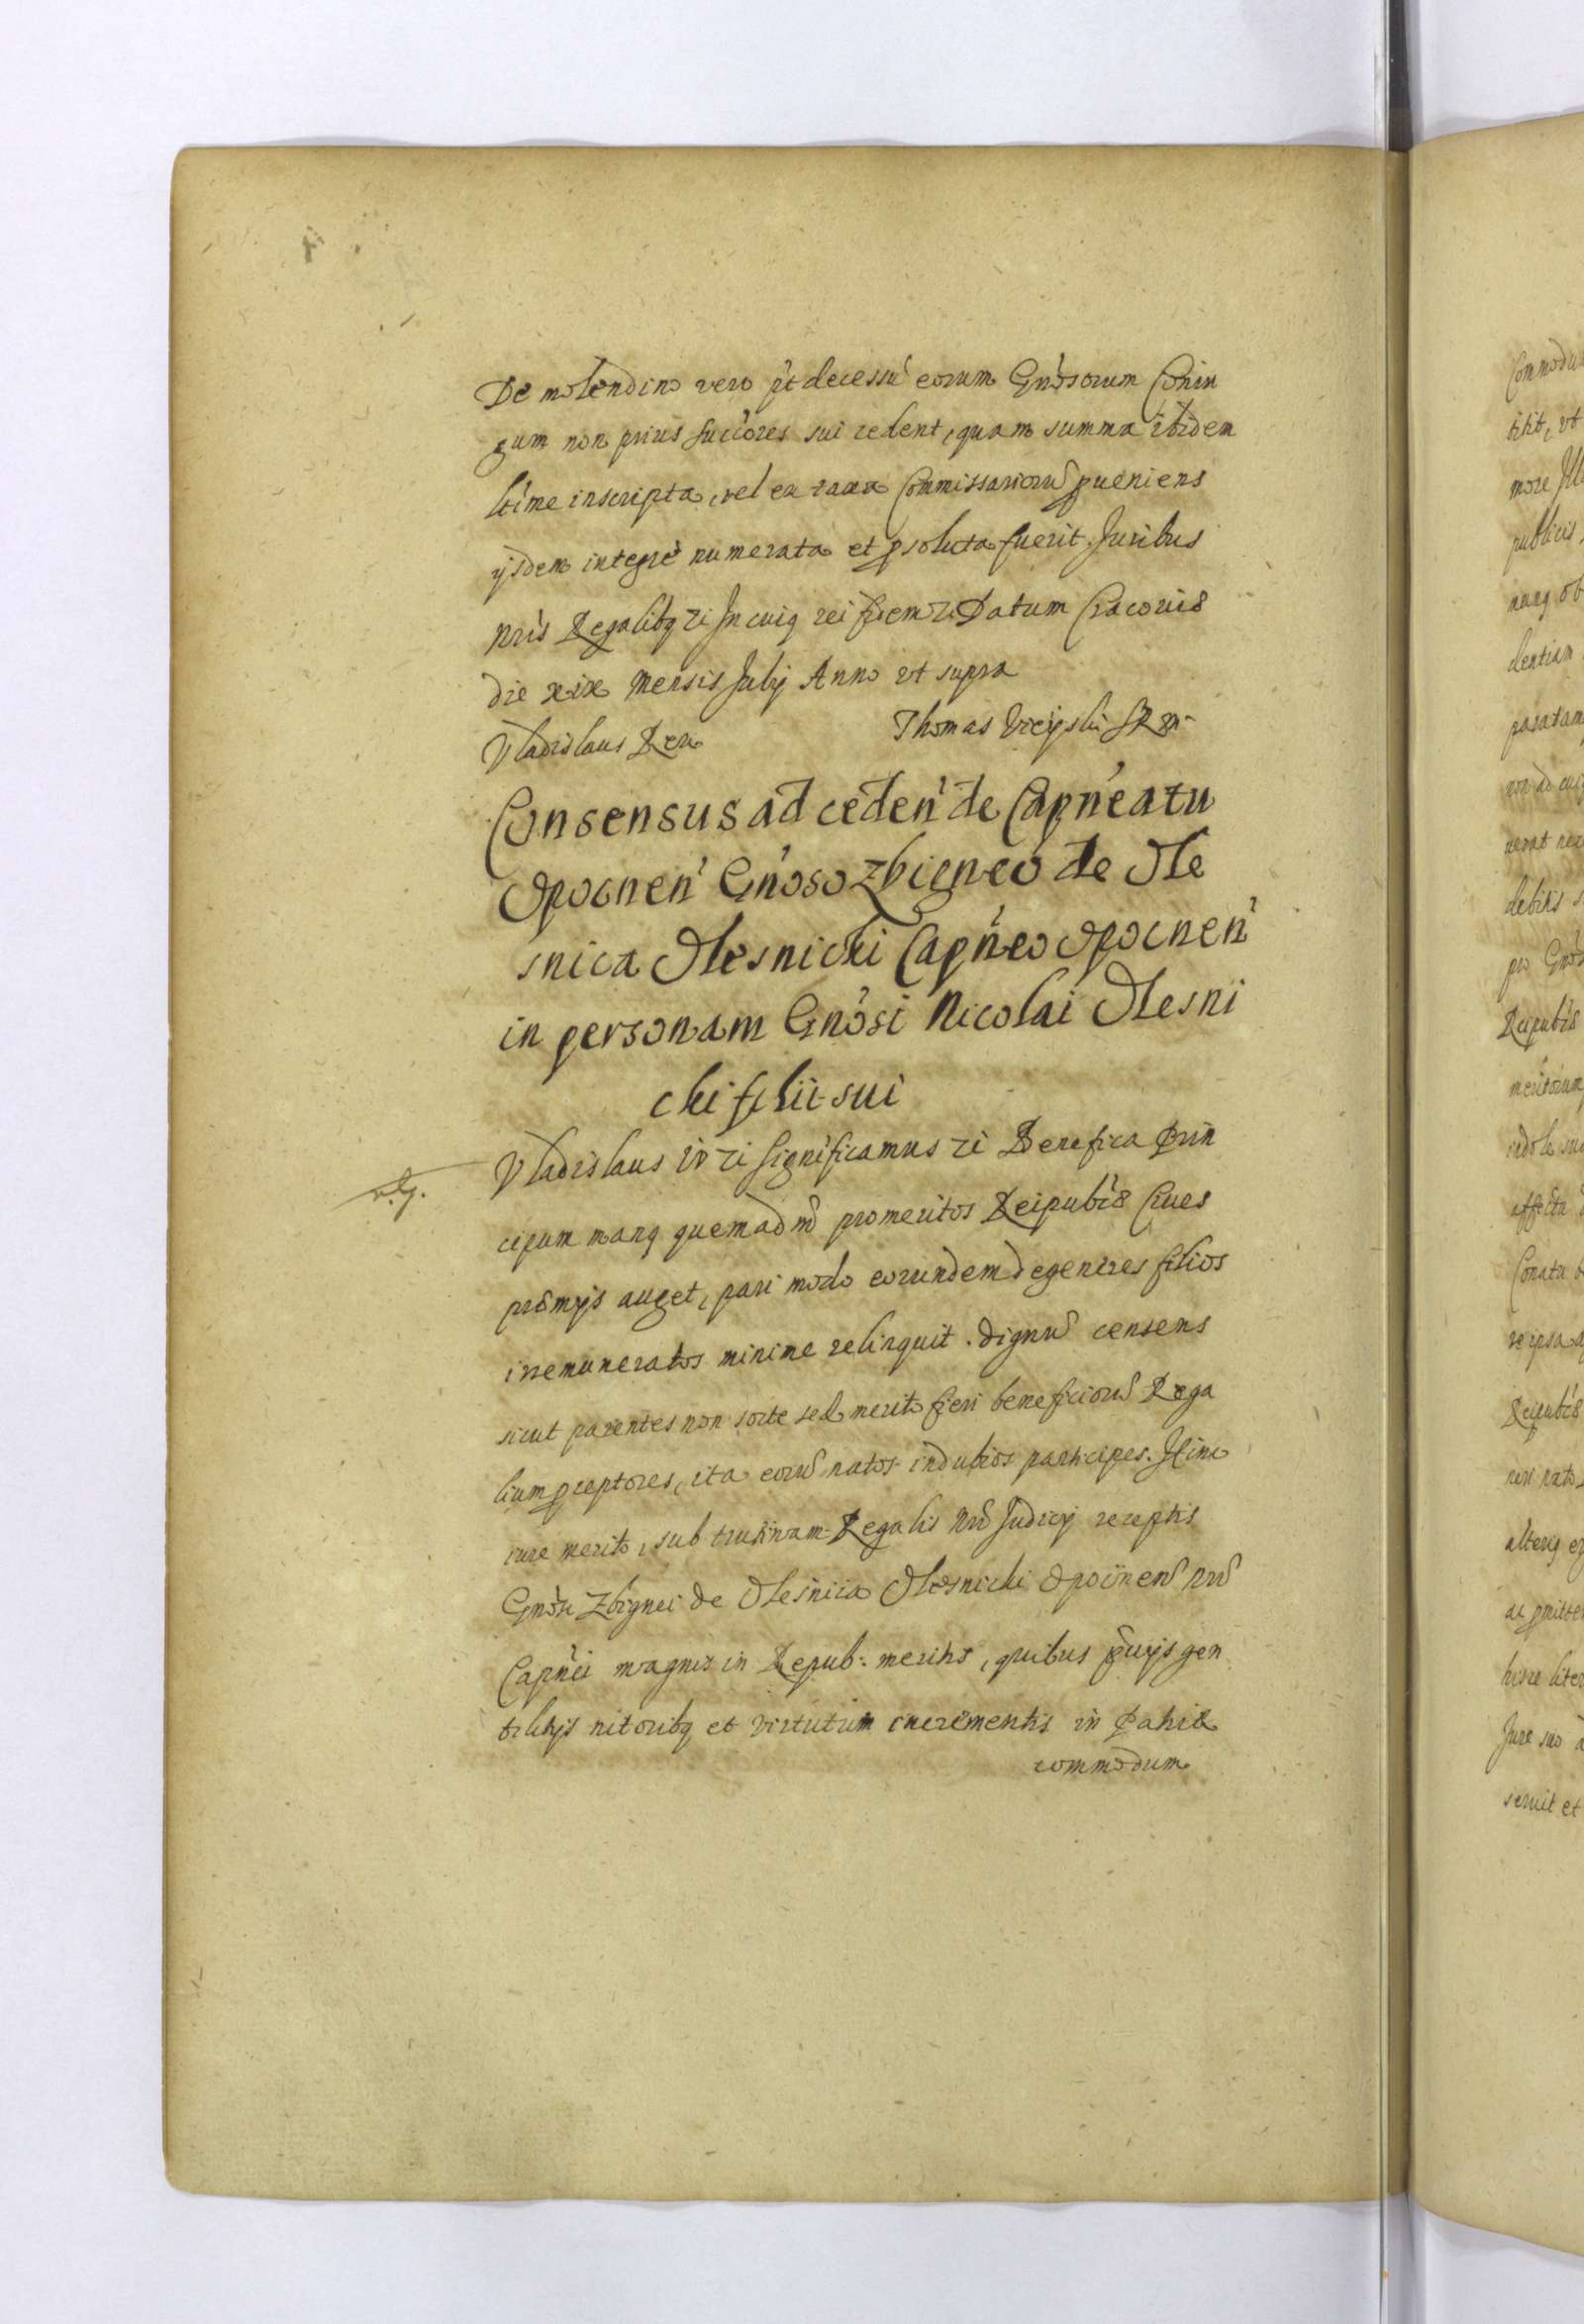 De molendino vero p't decessu' eorum Gn'osorum Coniu
gum non prius Succ'ores sui cedent, quam summa ibidem
lt'ime inscripta, vel ex taxa Commissarioru~ pueniens
ijsdem integrè numerata et psoluta fuerit. Juribus
nr'is Regalibq ꝛi In cuiq rei fidem ꝛi Datum Cracoviæ
die xix Mensis Julij Anno ut supra
Vladislaus Rex
Thomas Vieyski SRM
Consensus ad ceden' de Capn'eatu
Opocnen' Gn'oso Zbigneo de Ole
snica Olesnicki Capn'eo Opocnen'
in personam Gn'osi Nicolai Olesni
cki filii sui
Vladislaus IV ꝛi Significamus ꝛi Benefica Prin
cipum manq quemadm~ promeritos Reipub'cæ Ciues
præmijs auget, pari modo eorundem degeneres filios
irremuneratos minime relinquit. Dignu~ censens
sicut parentes non sorte sed merito fieri beneficioru~ Rega
lium pceptores, ita eoru~ natos indubios participes. Hinc
iure merito, sub trutinam Regalis nr~i Judicij receptis
Gn'osi Zbignei de Olesnica Olesnicki Opocnen~ nr~i
Capn'ei magnis in Repub: meritis, quibus p~uijs gen
tilitijs nitoribq et virtutum incrementis in Patriæ
commodum